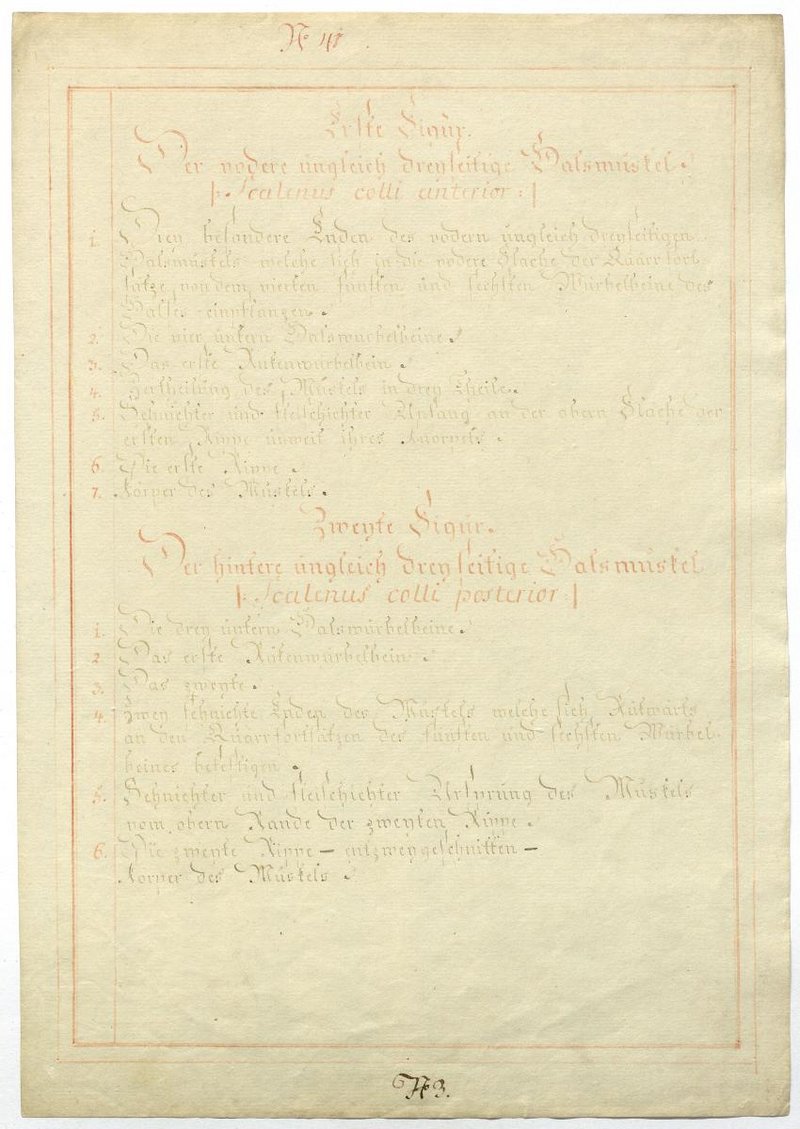 Erste Figur.
Der vodere ungleich dreyseitige Halsmuskel.
|: Scalenus colli anterior :|
1. Drey besondere Enden des vodern ungleich dreyseitigen
Halsmuskels welche sich in die vodere Fläche der Quärrfort-
sätze von dem vierten fünften und sechsten Würbelbeine des
Halses einpflanzen.
2. Die vier untern Halswürbelbeine.
3. Das erste Rükenwürbelbein.
4. Zertheilung des Muskels in drey Theile.
5. Sehnichter und fleischichter Anfang an der obern Fläche der
ersten Rippe unweit ihres Knorpels.
6. Die erste Rippe.
7. Körper des Muskels.
Zweyte Figur.
Der hintere ungleich dreyseitige Halsmuskel
|: Scalenus colli posterior :|
1. Die drey untern Halswürbelbeine.
2 Das erste Rükenwürbelbein.
3. Das zweyte.
4. Zwey sehnichte Enden des Muskels welche sich Rükwärts
an den Quärrfortsätzen des fünften und sechsten Würbel-
beines befestigen.
5. Sehnichter und fleischichter Ursprung des Muskels
vom obern Rande der zweyten Rippe.
6. Die zweyte Rippe – entzweygeschnitten –
Körper des Muskels.
№ 3.